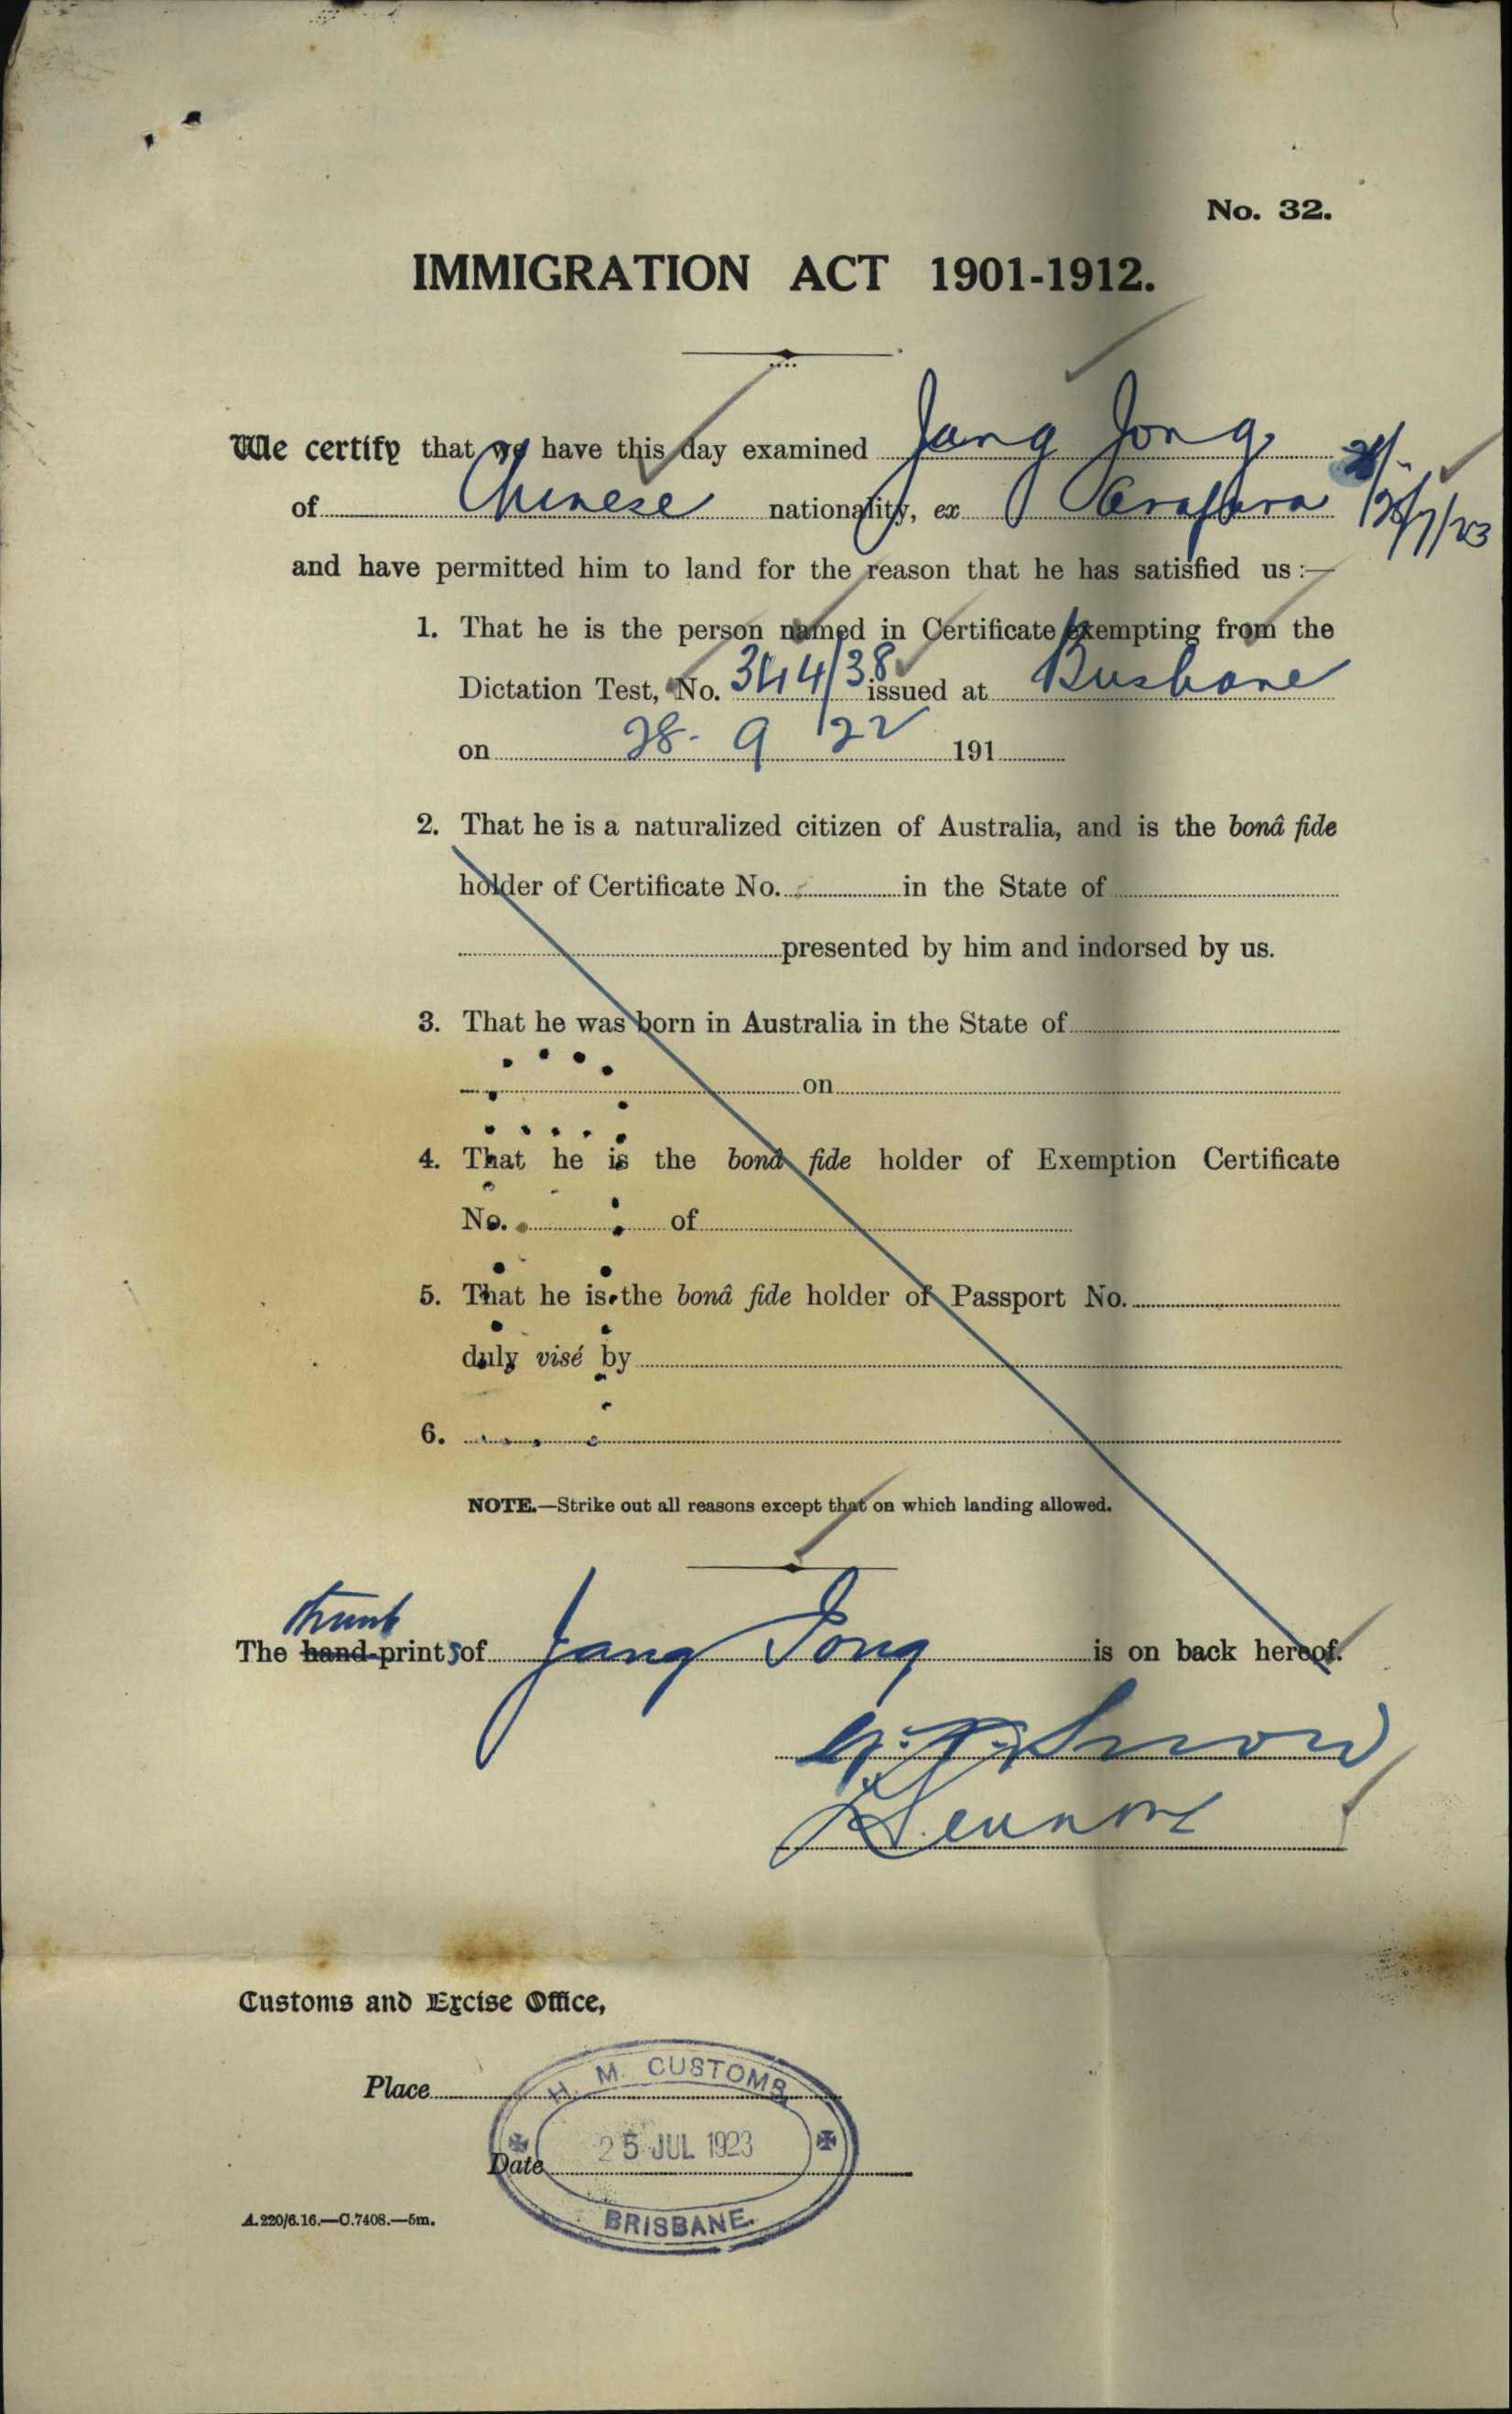 No. 32.
IMMIGRATION ACT 1901-1912.
We certify that we have this day examined Jang Jong
of Chinese nationality, ex Arafura 25/7/23
and have permitted him to land for the reason that he has satisfied us :—
1. That he is the person named in Certificate exempting from the
Dictation Test, No. 344/38 issued at Brisbane
on 28. 9 22 191
2. That he is a naturalized citizen of Australia, and is the bonâ fide
holder of Certificate No. in the State of
presented by him and indorsed by us.
3. That he was born in Australia in the State of
on
4. That he is the bonâ fide holder of Exemption Certificate
No. of
5. That he is the bonâ fide holder of Passport No.
duly visé by
6.
NOTE.—Strike out all reasons except that on which landing allowed.
thumb
The hand-prints of Jang Jong is on back hereof.
Snow
Customs and Excise Office,
Place
H. M. CUSTOMS
Date 25 JUL 1923
BRISBANE.
A.220/6.16.—C.7408.—5m.